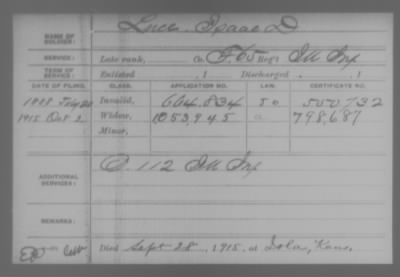 NAME OF SOLDIER: Luce, Isaac D
SERVICE: Late rank, Co. F, 65 Reg't Ill Inf
TERM OF SERVICE: Enlisted , 1 Discharged , 1
DATE OF FILING. CLASS. APPLICATION NO. LAW. CERTIFICATE NO.
1888 July Invalid, 664,834 550732
1915 Oct 2 Widow, 1053,945 798,687
Minor,
ADDITIONAL SERVICES: D. 112 Ill Inf
REMARKS:
Died Sept 28, 1915, at Iola, Kans.